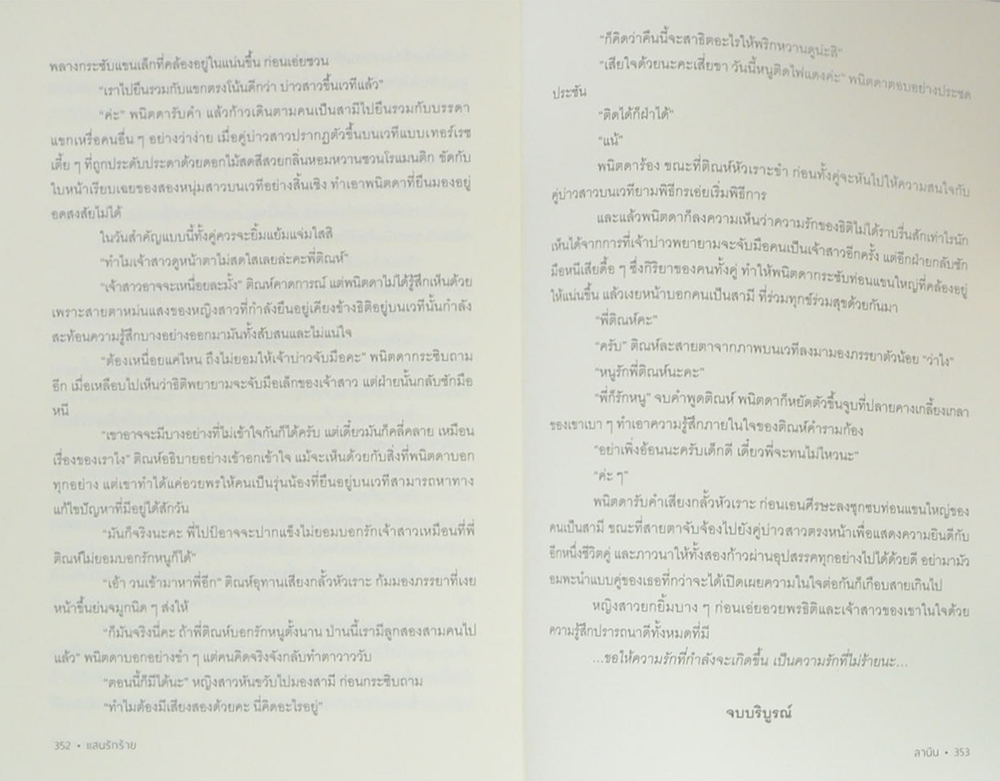 พลางกระชับแขนเล็กที่คล้องอยู่ในแน่นขึ้น ก่อนเอ่ยชวน
"เราไปยืนรวมกับแขกตรงโน้นดีกว่า บ่าวสาวขึ้นเวทีแล้ว"
"ค่ะ" พนิตดารับคำ แล้วก้าวเดินตามคนเป็นสามีไปยืนรวมกับบรรดา
แขกเหรื่อคนอื่น ๆ อย่างว่าง่าย เมื่อคู่บ่าวสาวปรากฏตัวขึ้นบนเวทีแบบเทอร์เรซ
เตี้ย ๆ ที่ถูกประดับประดาด้วยดอกไม้สดสีสวยกลิ่นหอมหวานชวนโรแมนติก ขัดกับ
ใบหน้าเรียบเฉยของสองหนุ่มสาวบนเวทีอย่างสิ้นเชิง ทำเอาพนิตดาที่ยืนมองอยู่
อดสงสัยไม่ได้
ในวันสำคัญแบบนี้ทั้งคู่ควรจะยิ้มแย้มแจ่มใสสิ
"ทำไมเจ้าสาวดูหน้าตาไม่สดใสเลยล่ะคะพี่ติณห์"
"เจ้าสาวอาจจะเหนื่อยละมั้ง" ติณห์คาดการณ์ แต่พนิตดาไม่ได้รู้สึกเห็นด้วย
เพราะสายตาหม่นแสงของหญิงสาวที่กำลังยืนอยู่เคียงข้างธิติอยู่บนเวทีนั้นกำลัง
สะท้อนความรู้สึกบางอย่างออกมามันทั้งสับสนและไม่แน่ใจ
"ต้องเหนื่อยแค่ไหน ถึงไม่ยอมให้เจ้าบ่าวจับมือคะ" พนิตดากระซิบถาม
อีก เมื่อเหลือบไปเห็นว่าธิติพยายามจะจับมือเล็กของเจ้าสาว แต่ฝ่ายนั้นกลับชักมือ
หนี
"เขาอาจจะมีบางอย่างที่ไม่เข้าใจกันก็ได้ครับ แต่เดี๋ยวมันก็คลี่คลาย เหมือน
เรื่องของเราไง" ติณห์อธิบายอย่างเข้าอกเข้าใจ แม้จะเห็นด้วยกับสิ่งที่พนิตดาบอก
ทุกอย่าง แต่เขาทำได้แค่อวยพรให้คนเป็นรุ่นน้องที่ยืนอยู่บนเวทีสามารถหาทาง
แก้ไขปัญหาที่มีอยู่ได้สักวัน
"มันก็จริงนะคะ พี่ไปป์อาจจะปากแข็งไม่ยอมบอกรักเจ้าสาวเหมือนที่พี่
ติณห์ไม่ยอมบอกรักหนูก็ได้"
"เอ้า วนเข้ามาหาพี่อีก" ติณห์อุทานเสียงกลั้วหัวเราะ ก้มมองภรรยาที่เงย
หน้าขึ้นย่นจมูกนิด ๆ ส่งให้
"ก็มันจริงนี่คะ ถ้าพี่ติณห์บอกรักหนูตั้งนาน ป่านนี้เรามีลูกสองสามคนไป
แล้ว" พนิตดาบอกอย่างขำ ๆ แต่คนคิดจริงจังกลับทำตาวาววับ
"ตอนนี้ก็มีได้นะ" หญิงสาวหันขวับไปมองสามี ก่อนกระซิบถาม
"ทำไมต้องมีเสียงสองด้วยคะ นี่คิดอะไรอยู่"
352 • แสนรักร้าย
"ก็คิดว่าคืนนี้จะสาธิตอะไรให้พริกหวานดูน่ะสิ"
"เสียใจด้วยนะคะเสี่ยขา วันนี้หนูติดไฟแดงค่ะ" พนิตดาตอบอย่างประชด
ประชัน
"ติดได้ก็ฝ่าได้"
"แน้"
พนิตดาร้อง ขณะที่ติณห์หัวเราะขำ ก่อนทั้งคู่จะหันไปให้ความสนใจกับ
คู่บ่าวสาวบนเวทียามพิธีกรเอ่ยเริ่มพิธีการ
และแล้วพนิตดาก็ลงความเห็นว่าความรักของธิติไม่ได้ราบรื่นสักเท่าไรนัก
เห็นได้จากการที่เจ้าบ่าวพยายามจะจับมือคนเป็นเจ้าสาวอีกครั้ง แต่อีกฝ่ายกลับชัก
มือหนีเสียดื้อ ๆ ซึ่งกิริยาของคนทั้งคู่ ทำให้พนิตดากระชับท่อนแขนใหญ่ที่คล้องอยู่
ให้แน่นขึ้น แล้วเงยหน้าบอกคนเป็นสามี ที่ร่วมทุกข์ร่วมสุขด้วยกันมา
"พี่ติณห์คะ"
"ครับ" ติณห์ละสายตาจากภาพบนเวทีลงมามองภรรยาตัวน้อย "ว่าไง"
"หนูรักพี่ติณห์นะคะ"
"พี่ก็รักหนู" จบคำพูดติณห์ พนิตดาก็หยัดตัวขึ้นจูบที่ปลายคางเกลี้ยงเกลา
ของเขาเบา ๆ ทำเอาความรู้สึกภายในใจของติณห์คำรามก้อง
"อย่าเพิ่งอ้อนนะครับเด็กดี เดี๋ยวพี่จะทนไม่ไหวนะ"
"ค่ะ ๆ"
พนิตดารับคำเสียงกลั้วหัวเราะ ก่อนเอนศีรษะลงซุกซบท่อนแขนใหญ่ของ
คนเป็นสามี ขณะที่สายตาจับจ้องไปยังคู่บ่าวสาวตรงหน้าเพื่อแสดงความยินดีกับ
อีกหนึ่งชีวิตคู่ และภาวนาให้ทั้งสองก้าวผ่านอุปสรรคทุกอย่างไปได้ด้วยดี อย่ามามัว
อมพะนำแบบคู่ของเธอที่กว่าจะได้เปิดเผยความในใจต่อกันก็เกือบสายเกินไป
หญิงสาวยกยิ้มบาง ๆ ก่อนเอ่ยอวยพรธิติและเจ้าสาวของเขาในใจด้วย
ความรู้สึกปรารถนาดีทั้งหมดที่มี
...ขอให้ความรักที่กำลังจะเกิดขึ้น เป็นความรักที่ไม่ร้ายนะ...
จบบริบูรณ์
ลานีน • 353